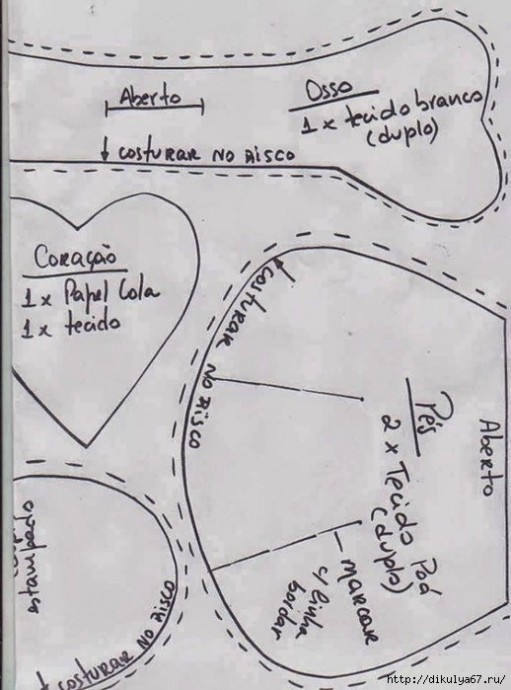 Aberto
Osso
1 x tecido branco
(duplo)
costurar no risco
Coração
1 x Papel Cola
1 x tecido
costurar no risco
Pés
2 x Tecido Poá
(duplo)
Aberto
marcar
c/ linha
bordar
estampado
costurar no risco
http://dikulya67.ru/